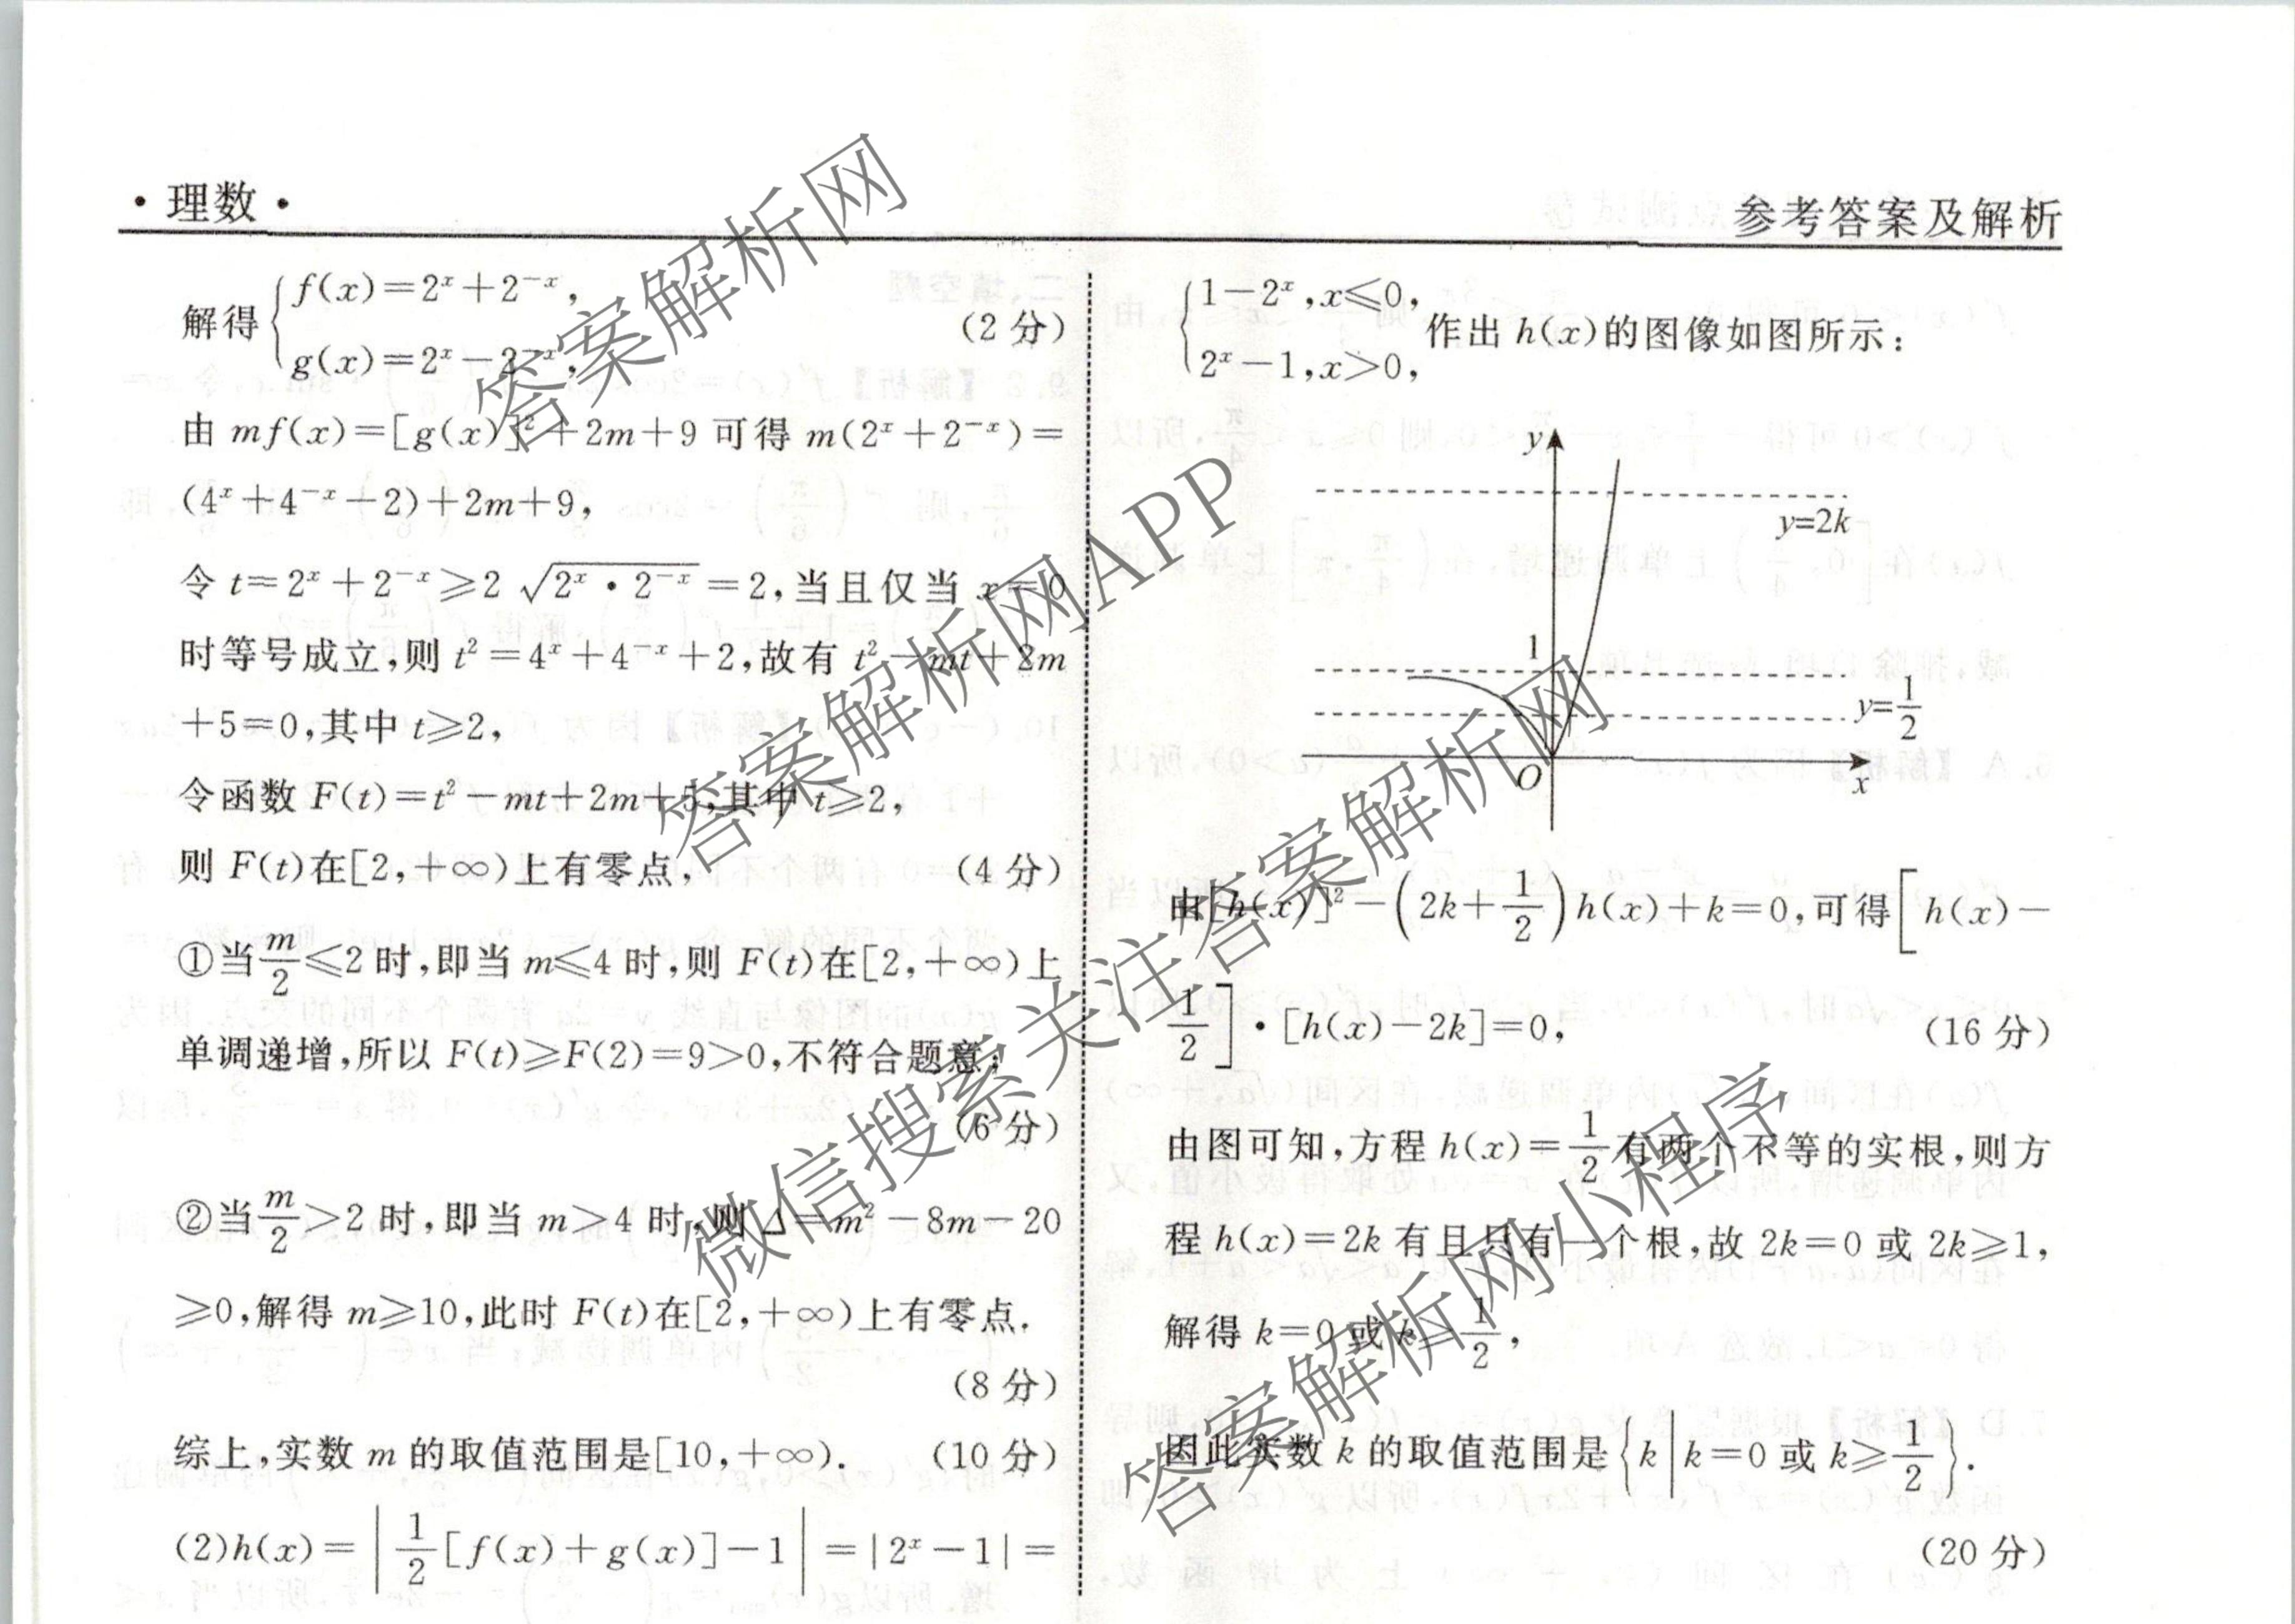 ·理数·
参考答案及解析
解得{f(x)=2ˣ+2⁻ˣ,
g(x)=2ˣ-2⁻ˣ, (2分)
由 mf(x)=[g(x)]²+2m+9 可得 m(2ˣ+2⁻ˣ)=
(4ˣ+4⁻ˣ-2)+2m+9,
令 t=2ˣ+2⁻ˣ≥2√(2ˣ·2⁻ˣ)=2,当且仅当 x=0
时等号成立,则 t²=4ˣ+4⁻ˣ+2,故有 t²-mt+2m
+5=0,其中 t≥2,
令函数 F(t)=t²-mt+2m+5,其中 t≥2,
则 F(t)在[2,+∞)上有零点, (4分)
①当m/2≤2时,即当 m≤4时,则 F(t)在[2,+∞)上
单调递增,所以 F(t)≥F(2)=9>0,不符合题意;
(6分)
②当m/2>2时,即当 m>4时,则 Δ=m²-8m-20
≥0,解得 m≥10,此时 F(t)在[2,+∞)上有零点.
(8分)
综上,实数 m 的取值范围是[10,+∞). (10分)
(2)h(x)=|1/2[f(x)+g(x)]-1|=|2ˣ-1|=
{1-2ˣ,x≤0,
2ˣ-1,x>0, 作出 h(x)的图像如图所示:
y
y=2k
1
y=1/2
O
x
由[h(x)]²-(2k+1/2)h(x)+k=0,可得[h(x)-
1/2]·[h(x)-2k]=0, (16分)
由图可知,方程 h(x)=1/2有两个不等的实根,则方
程 h(x)=2k 有且只有一个根,故 2k=0 或 2k≥1,
解得 k=0 或 k≥1/2,
因此实数 k 的取值范围是{k|k=0 或 k≥1/2}.
(20分)
答案解析网
答案解析网APP
微信搜索关注答案解析网
答案解析网小程序